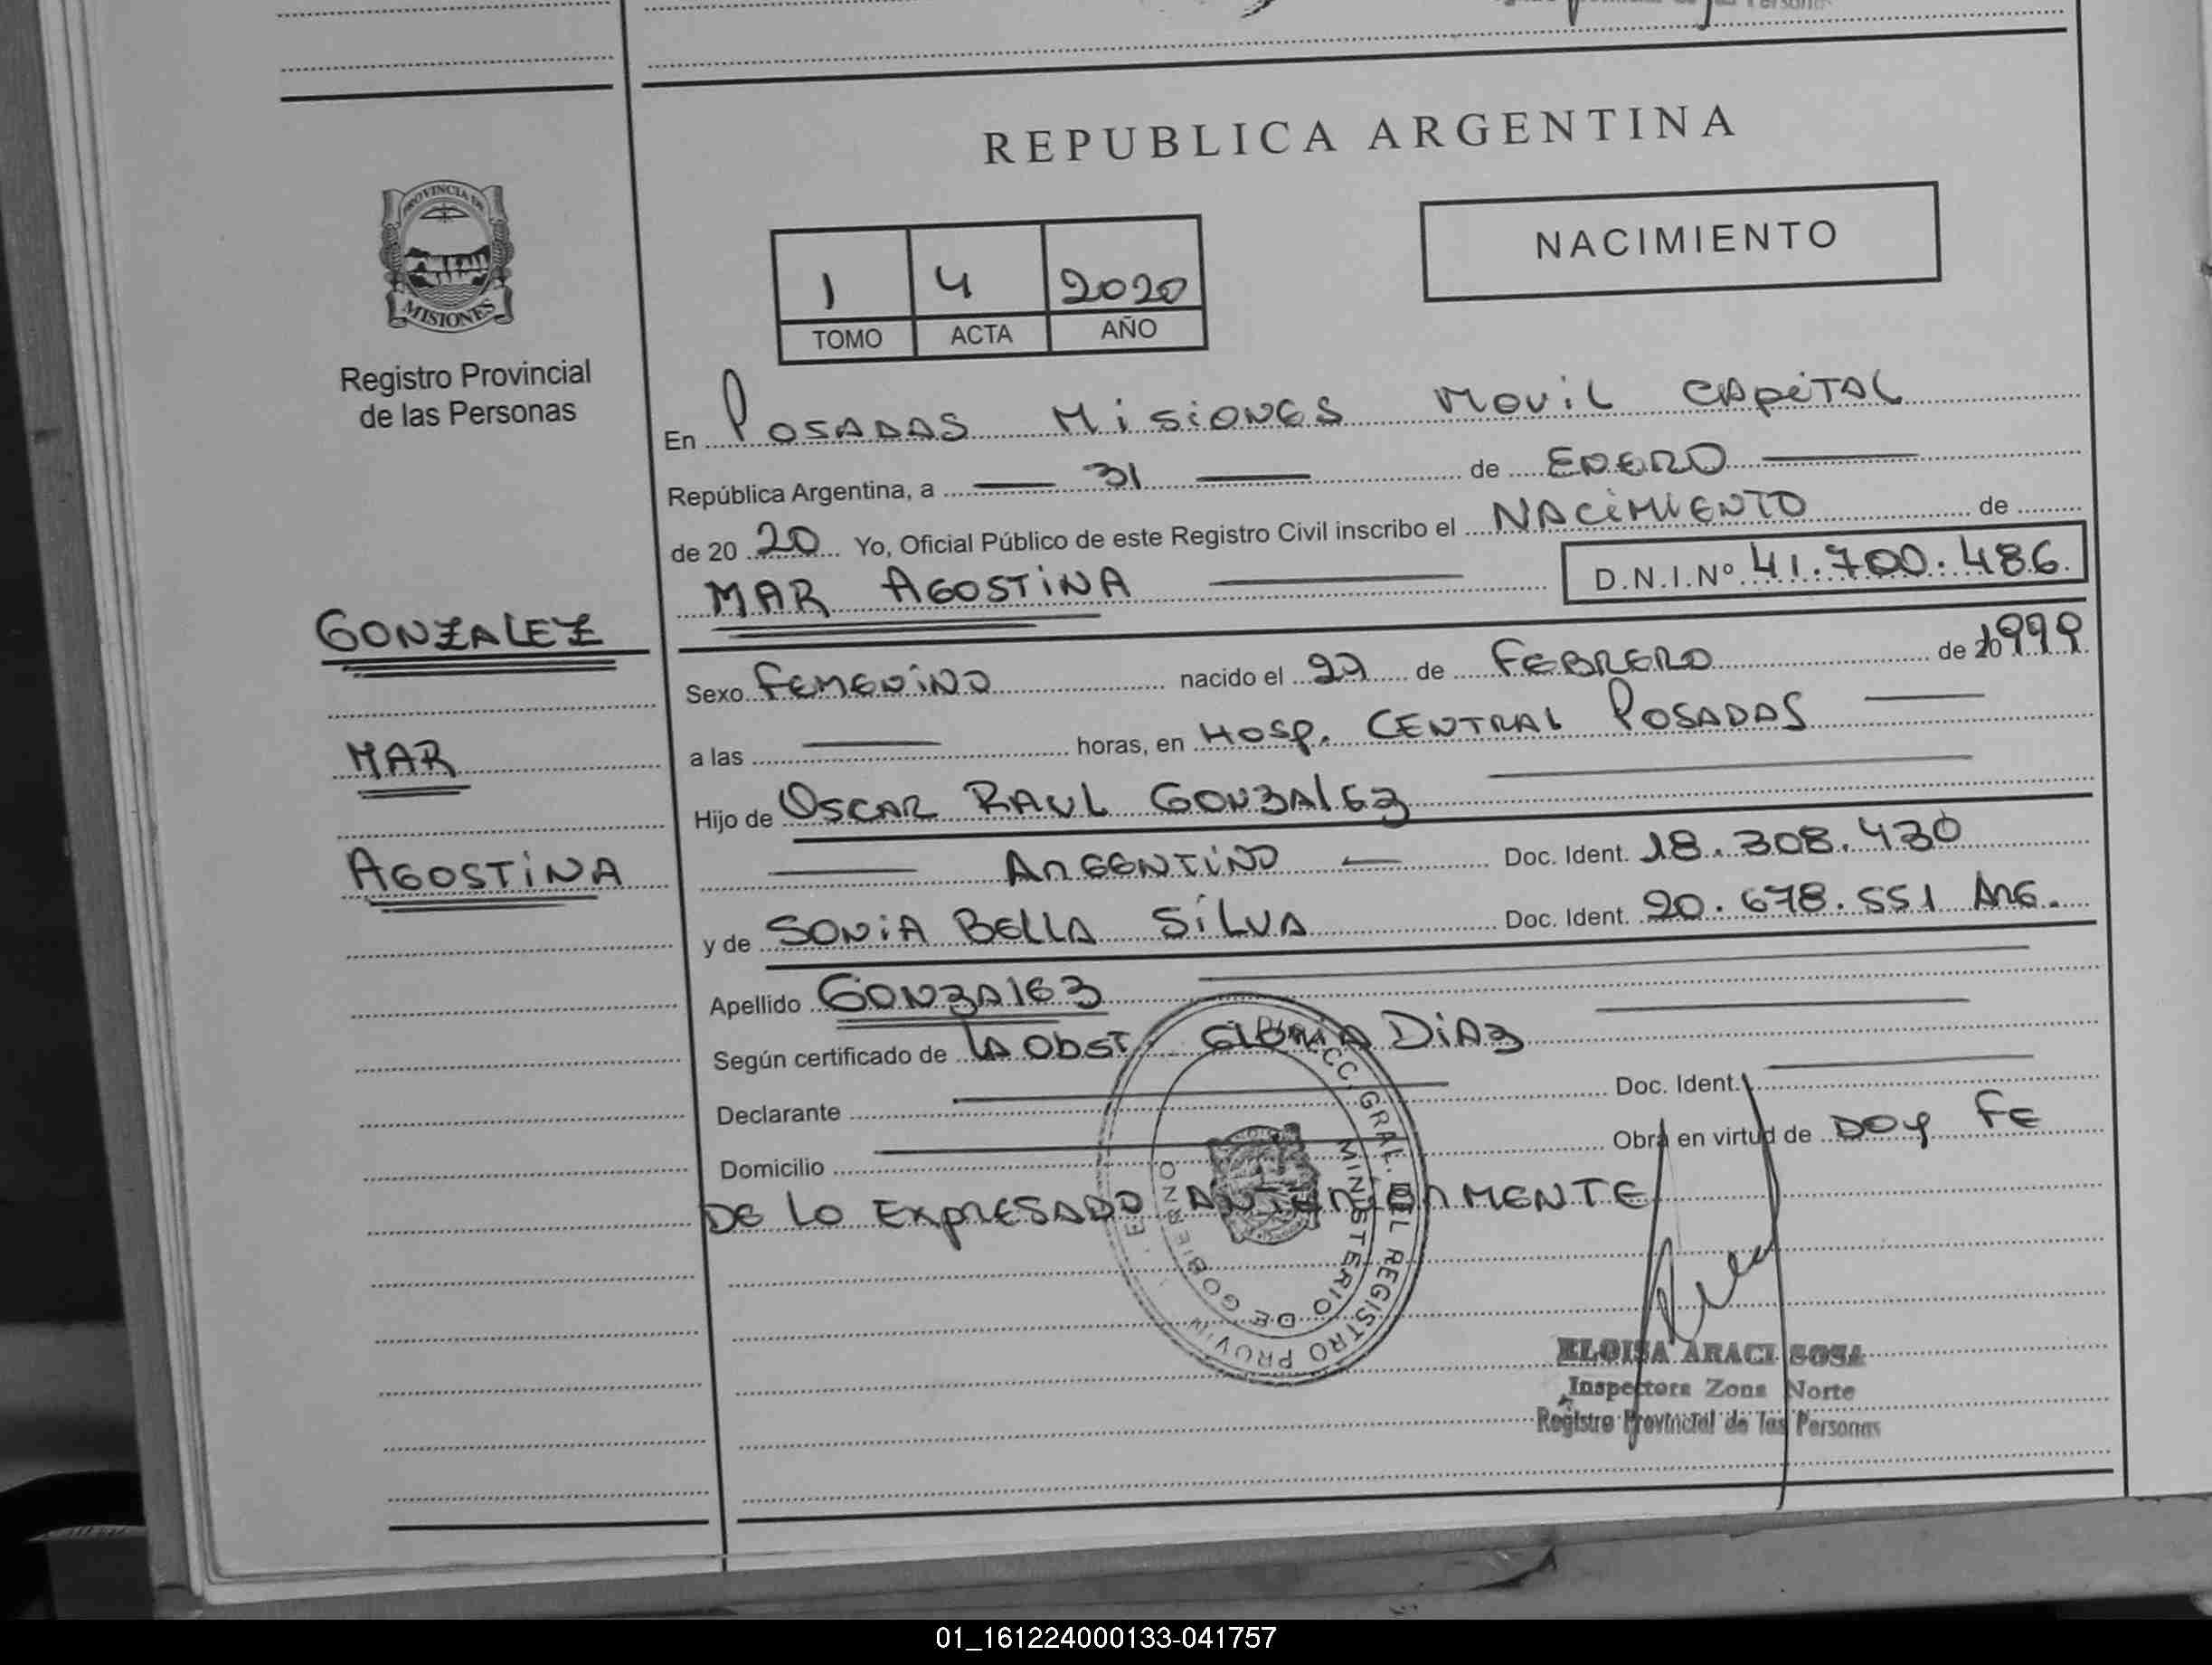 REPUBLICA ARGENTINA
PROVINCIA DE
MISIONES
Registro Provincial
de las Personas
NACIMIENTO
1 4 2020
TOMO ACTA AÑO
En POSADAS MISIONES MOVIL CAPITAL
República Argentina, a 31 de ENERO
de 20 20 Yo, Oficial Público de este Registro Civil inscribo el NACIMIENTO de
MAR AGOSTINA D.N.I.Nº 41.700.486
GONZALEZ
MAR
AGOSTINA
Sexo FEMENINO nacido el de FEBRERO de 1999
a las horas, en HOSP. CENTRAL POSADAS
Hijo de OSCAR RAUL GONZALEZ
ARGENTINO Doc. Ident. 18.308.430
y de SONIA BELLA SILVA Doc. Ident. 20.678.551 ARG.
Apellido GONZALEZ
Según certificado de LA OBST. GLORIA DIAZ
Declarante Doc. Ident.
Domicilio Obra en virtud de DOY FE
DE LO EXPRESADO ANTERIORMENTE
GRAL. DEL REGISTRO PROVIN
MINISTERIO DE GOBIERNO
ELOISA ARACI SOSA
Inspectora Zona Norte
Registro Provincial de las Personas
01_161224000133-041757